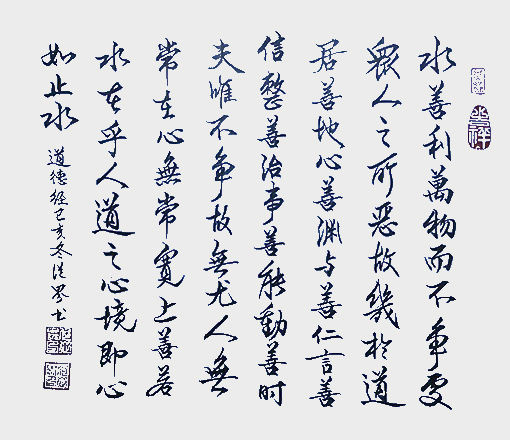 水善利萬物而不爭處
衆人之所惡故幾於道
居善地心善淵与善仁言善
信整善治事善能動善时
夫唯不爭故無尤人無
常在心無常寬上善若
水在乎人道之心境即心
如止水
道德經己亥冬书